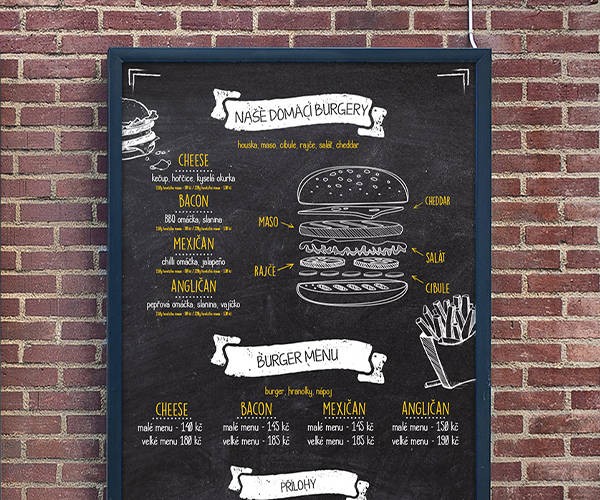 NAŠE DOMÁCÍ BURGERY
houska, maso, cibule, rajče, salát, cheddar
CHEESE
kečup, hořčice, kyselá okurka
BACON
BBQ omáčka, slanina
MEXIČAN
chilli omáčka, jalapeño
ANGLIČAN
pepřová omáčka, slanina, vajíčko
CHEDDAR
MASO
SALÁT
RAJČE
CIBULE
BURGER MENU
burger, hranolky, nápoj
CHEESE
malé menu - 140 kč
velké menu 180 kč
BACON
malé menu - 145 kč
velké menu - 185 kč
MEXIČAN
malé menu - 145 kč
velké menu - 185 kč
ANGLIČAN
malé menu - 150 kč
velké menu - 190 kč
PŘÍLOHY